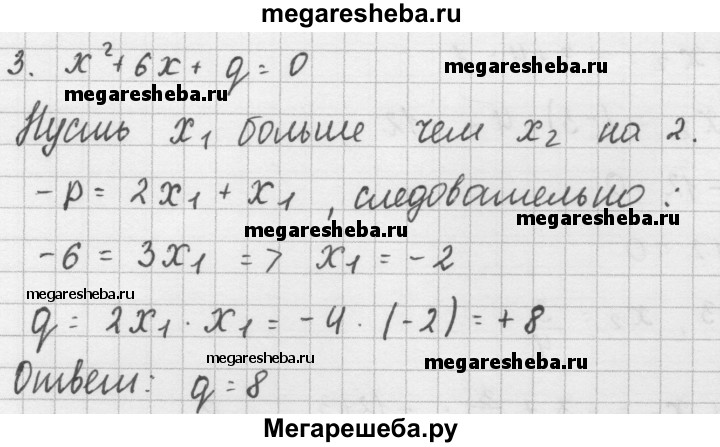 megaresheba.ru
3. x² + 6x + q = 0
megaresheba.ru
megaresheba.ru
Пусть x₁ больше чем x₂ на 2.
-p = 2x₁ + x₁, следовательно:
megaresheba.ru
-6 = 3x₁ => x₁ = -2
megaresheba.ru
q = 2x₁ · x₁ = -4 · (-2) = +8
megaresheba.ru
megaresheba.ru
Ответ: q = 8
Мегарешеба.ру